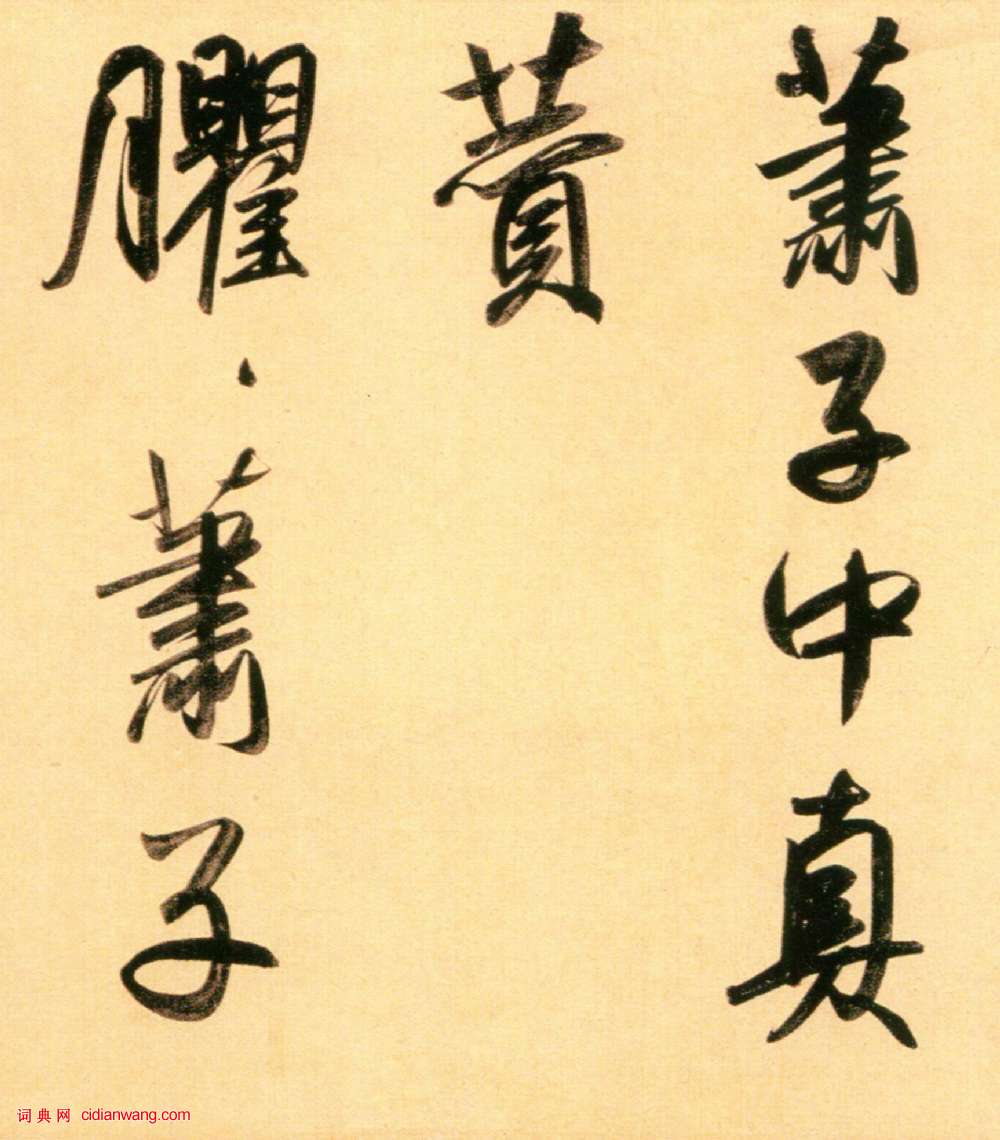 蕭子中真
贊
臞、蕭子
词典网 cidianwang.com